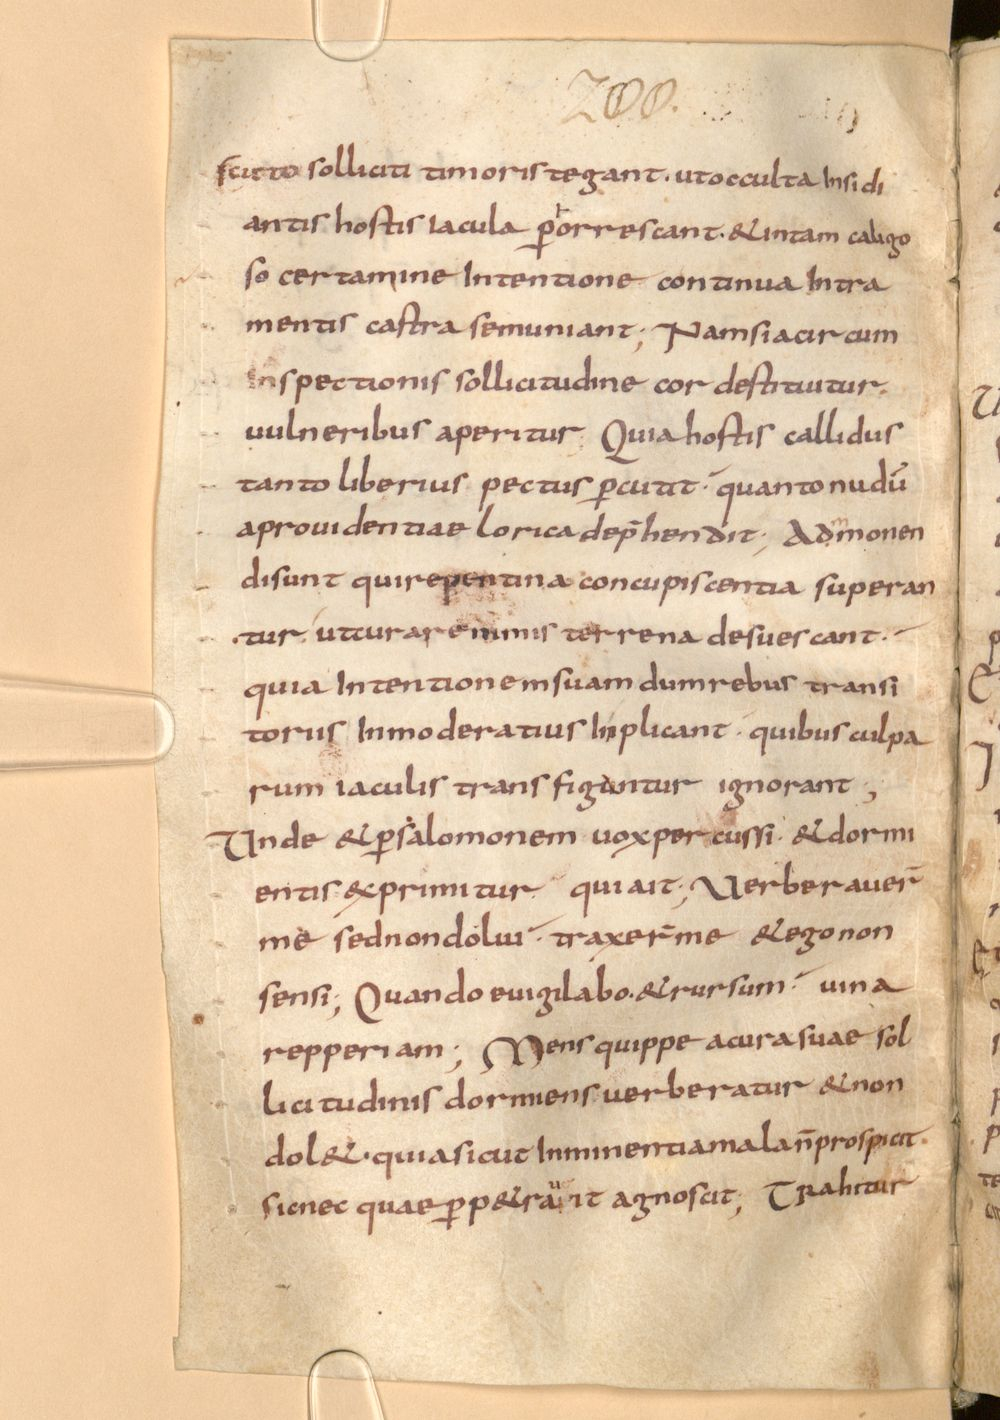 200.
scuto solliciti timoris tegant. ut occulta Insidi
antis hostis iacula p̄horrescant. & intam caligo
so certamine Intentione continua Intra
mentis castra se muniant; Nam si a circum
Inspectionis sollicitudine cor destituitur.
uulneribus aperitur Quia hostis callidus
tanto liberius pectus ꝑcutit. quanto nudū
a prouidentiae lorica dep̄hendit; Admmonen
di sunt qui repentina concupiscentia superan
tur. ut curare nimis terrena desuescant.
quia Intentionem suam dum rebus transi
toriis Inmoderatius Inplicant. quibus culpa
rum iaculis transfiguntur ignorant;
Unde & ꝑ salomonem uox percussi. & dormi
entis exprimitur qui ait; Uerberauer̄
me sed non dolui. traxer̄ me & ego non
sensi; Quando euigilabo. & rursum. uina
repperiam; Mens quippe a cura suae sol
licitudinis dormiens uerberatur & non
dol&. quia sicut Inminentia mala n̄ prospicit.
sic nec quae ꝑp&rauit agnoscit; Trahitur